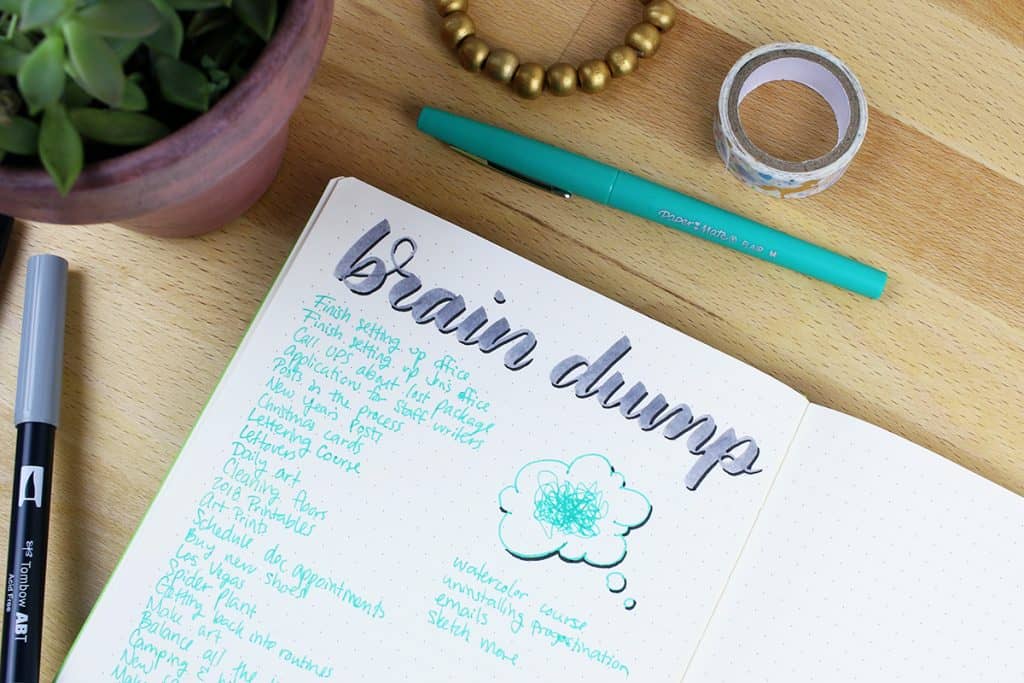 PaperMate® FLAIR M
brain dump
Finish setting up office
Finish setting up Jen's office
Call UPS about lost package
application for staff writers
Posts in the process
New years Post?
Christmas cards
Lettering Course
Leftovers
Daily art
Cleaning floors
2018 Printables
Art Prints
Schedule doc appointments
Buy new shoes
Las Vegas
Spider plant
Getting back into routines
Make art
Balance all the
Camping &
New
watercolor course
uninstalling progestination
emails
sketch more
Tombow ABT
Acid Free